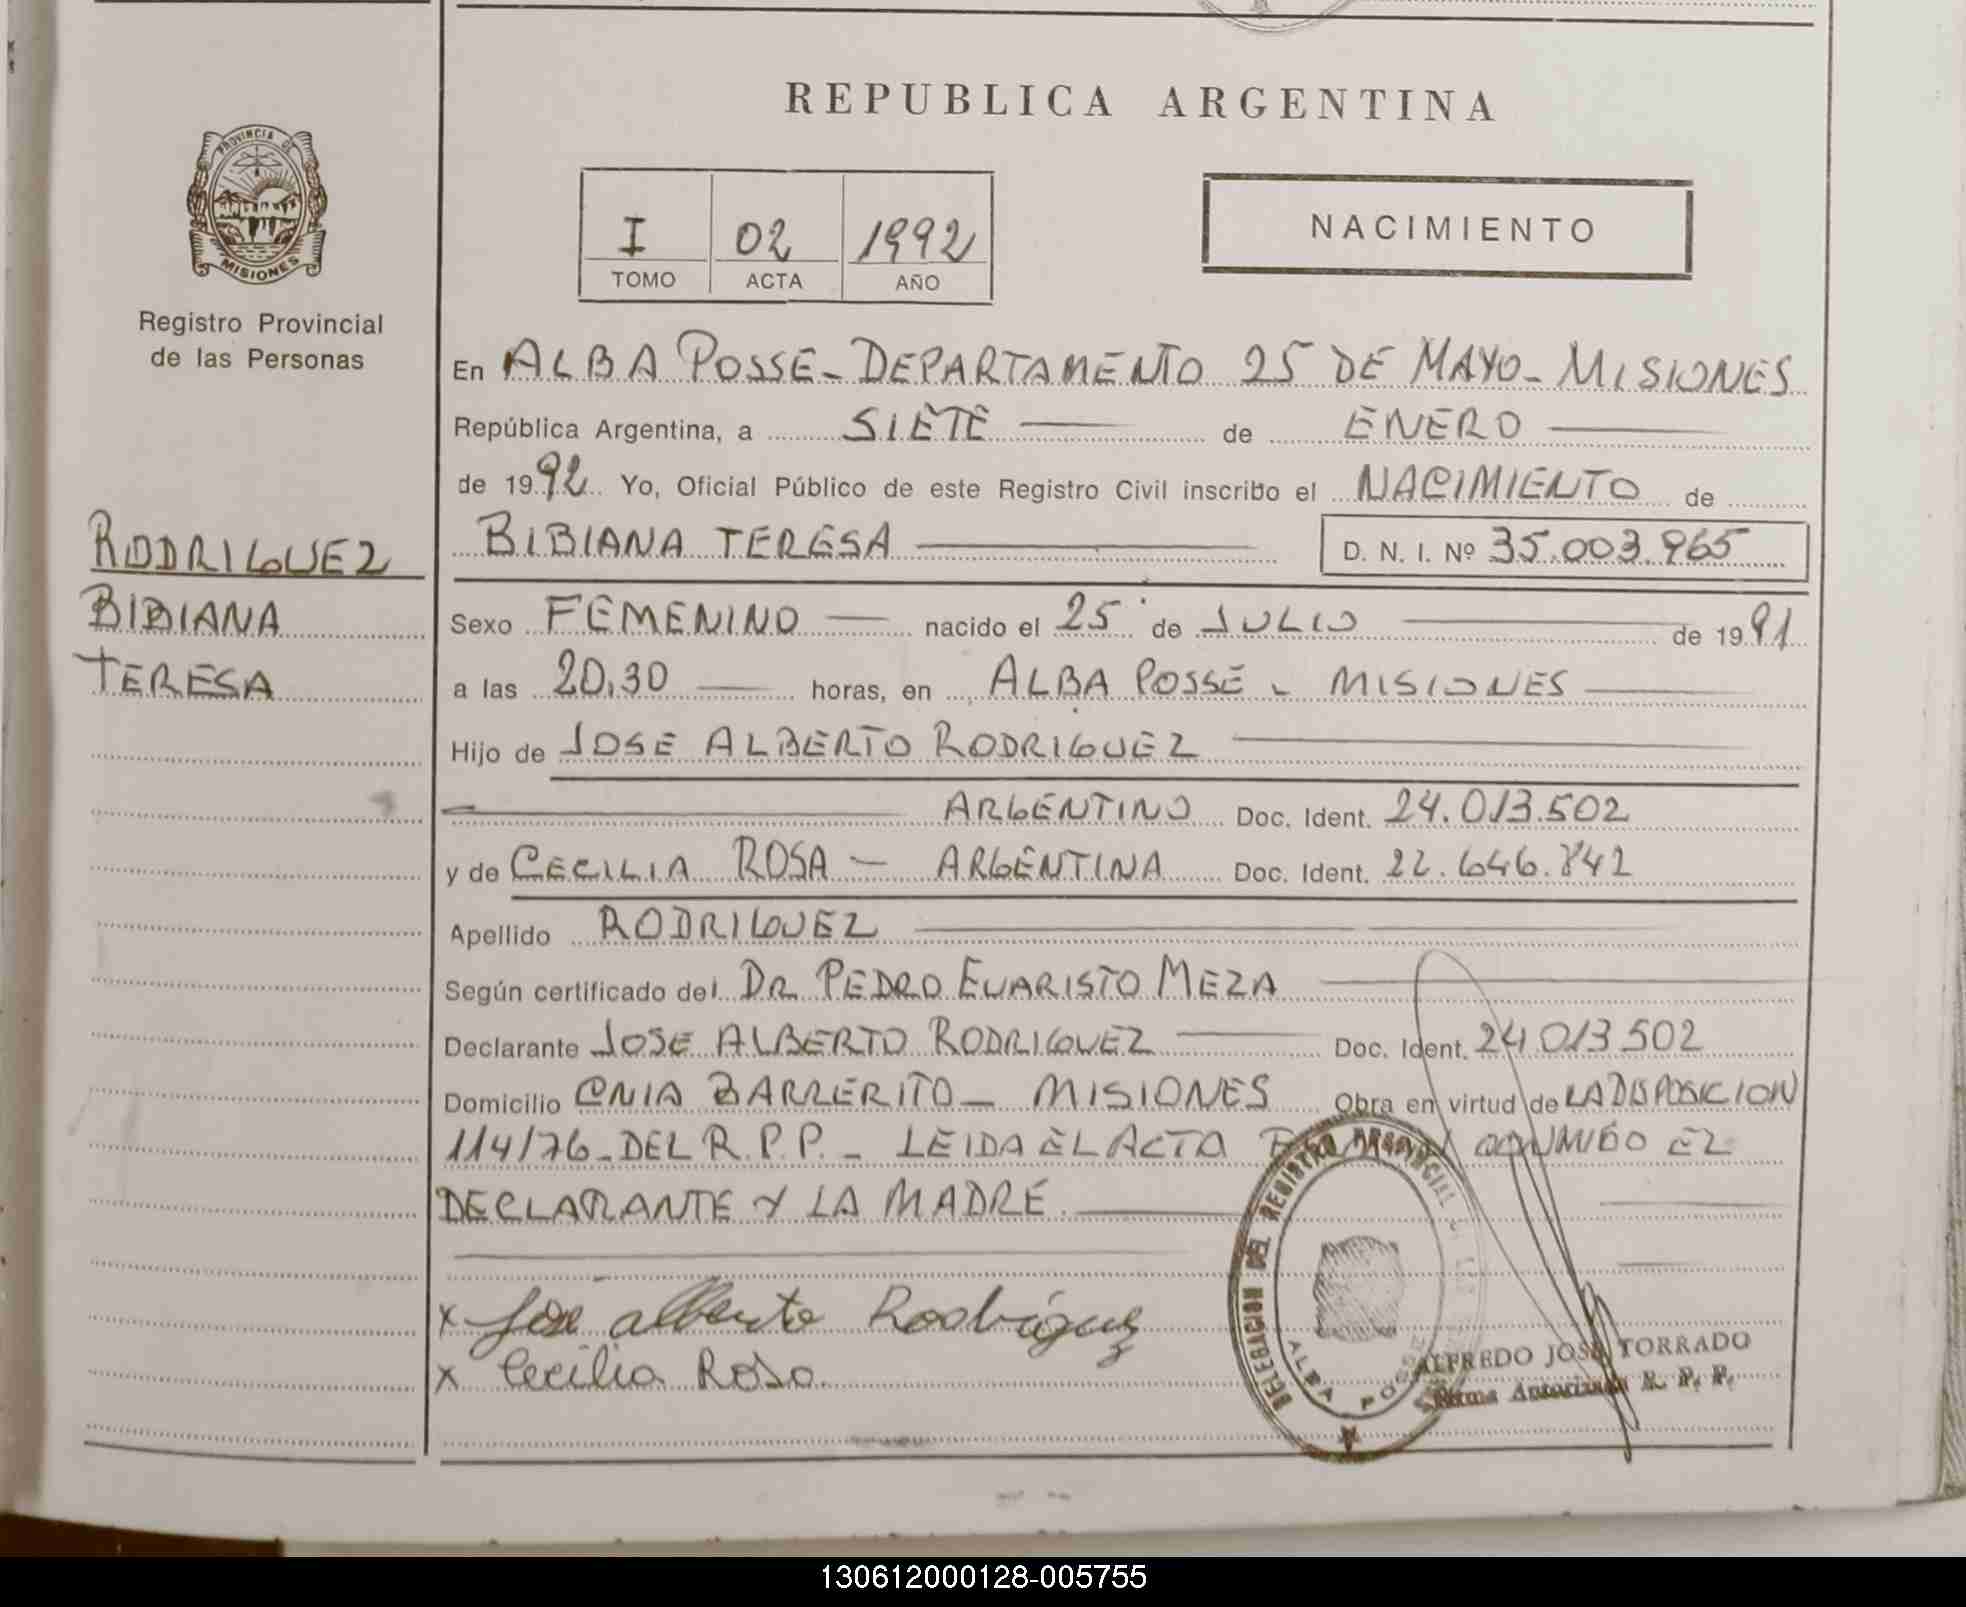 REPUBLICA ARGENTINA
PROVINCIA DE
MISIONES
Registro Provincial
de las Personas
I 02 1992
TOMO ACTA AÑO
NACIMIENTO
En ALBA POSSE - DEPARTAMENTO 25 DE MAYO - MISIONES
República Argentina, a SIETE de ENERO
de 1992 Yo, Oficial Público de este Registro Civil inscribo el NACIMIENTO de
BIBIANA TERESA D. N. I. Nº 35.003.965
RODRIGUEZ
BIBIANA
TERESA
Sexo FEMENINO nacido el 25 de JULIO de 1991
a las 20,30 horas, en ALBA POSSE - MISIONES
Hijo de JOSE ALBERTO RODRIGUEZ
ARGENTINO Doc. Ident. 24.013.502
y de CECILIA ROSA - ARGENTINA Doc. Ident. 22.646.842
Apellido RODRIGUEZ
Según certificado del DR PEDRO EVARISTO MEZA
Declarante JOSE ALBERTO RODRIGUEZ Doc. Ident. 24013502
Domicilio CNIA BARRERITO - MISIONES Obra en virtud de LA DISPOSICION
114/76 - DEL R.P.P. - LEIDA EL ACTA EL
DECLARANTE Y LA MADRE.
x José alberto Rodríguez
x Cecilia Rosa
DELEGACION DEL REGISTRO PROVINCIAL
ALBA POSSE
ALFREDO JOSE TORRADO
Firma Autorizada R. P. P.
130612000128-005755